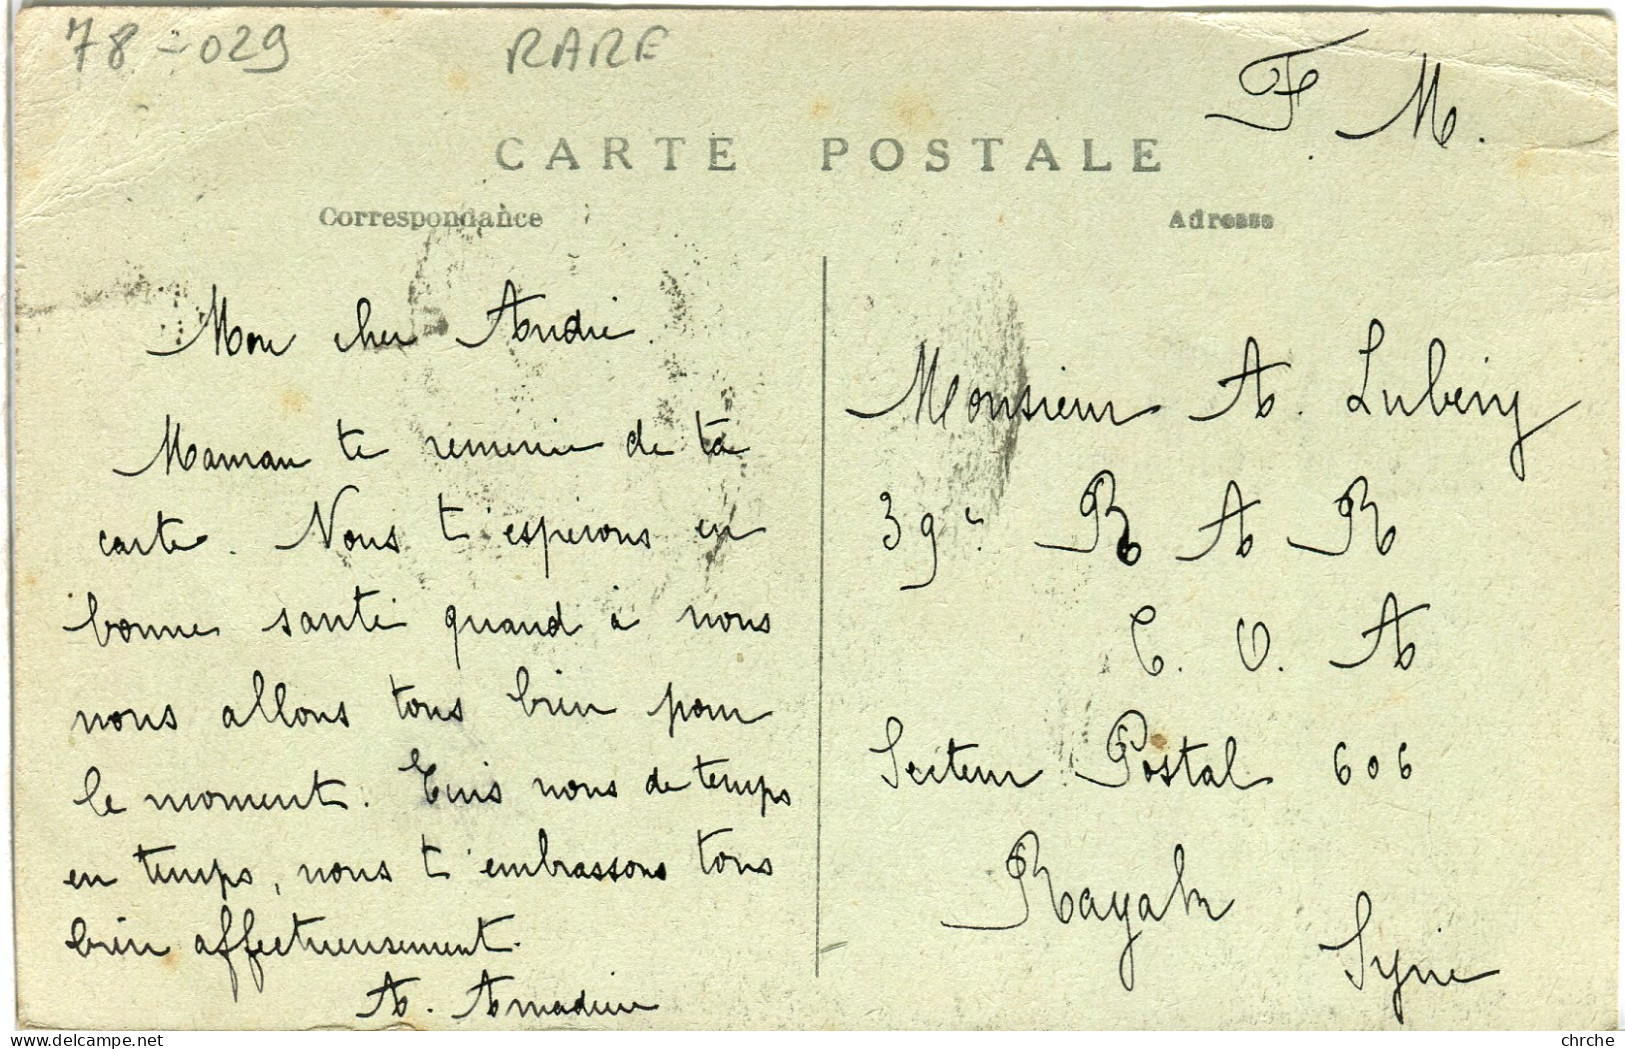 78-029 RARE
F. M.
CARTE POSTALE
Correspondance
Adresse
Mon cher André.
Maman te remercie de ta
carte. Nous t'espérons en
bonne santé quand à nous
nous allons tous bien pour
le moment. Ecris nous de temps
en temps, nous t'embrassons tous
bien affectueusement.
A.
Monsieur A. Lubény
39e R A R
C. O. A
Secteur Postal 606
Rayak
Syrie
delcampe.net
chrche